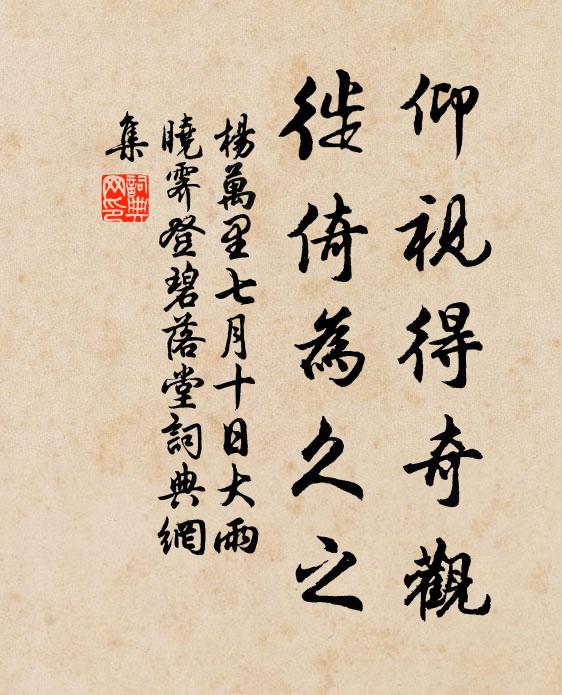 仰視得奇觀
徙倚為久之
楊萬里七月十日大雨
曉霽登碧落堂詞典網
集
詞典
网印